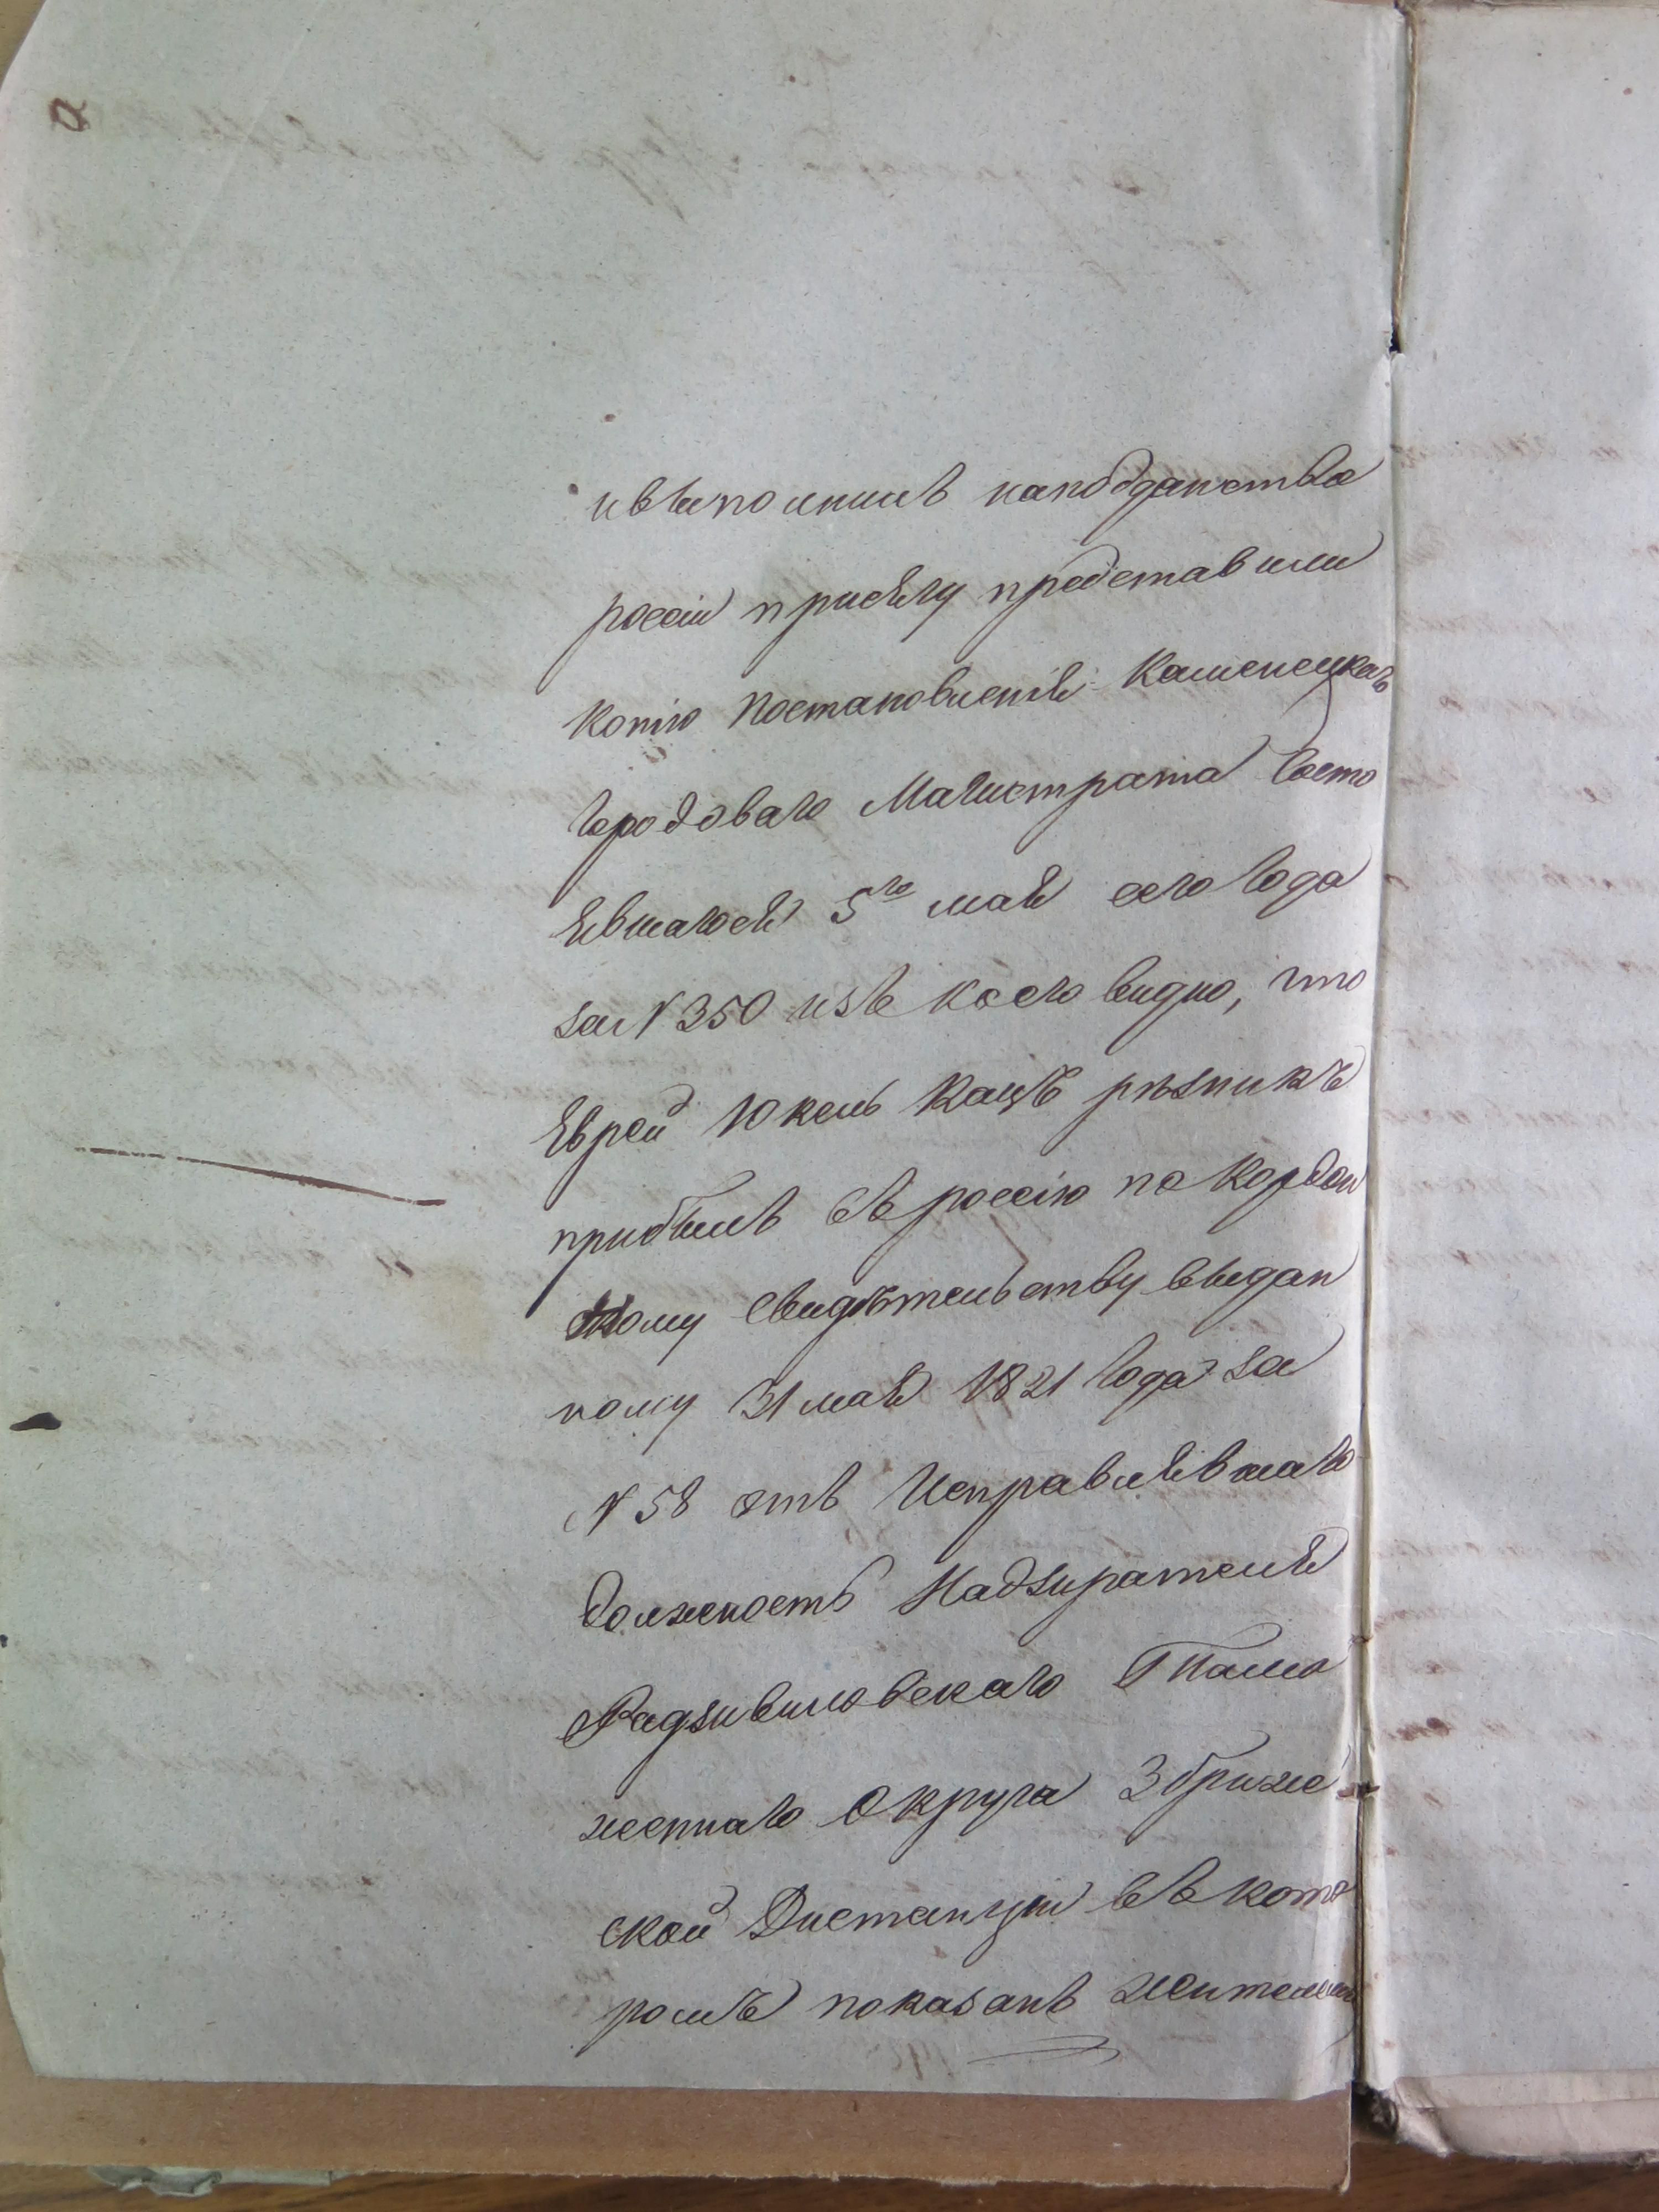 ивыполнилъ наподданство
россіи присягу представили
копію постановленія Каменецкаго
Городоваго Магистрата Состо
явшагося 5го мая сего Года
за N 350 изъ коего видно, что
Еврей Юкель Кацъ резникъ
прибылъ въ россію по Кордон
ному Свидѣтельству выдан
ному 31 мая 1821 Года за
N 58 отъ Исправлявшаго
Должность Надзирателя
Радзивиловскаго Тамо
женнаго Округа Збриже
ской Дистанции въ кото
ромъ показанъ жителемъ